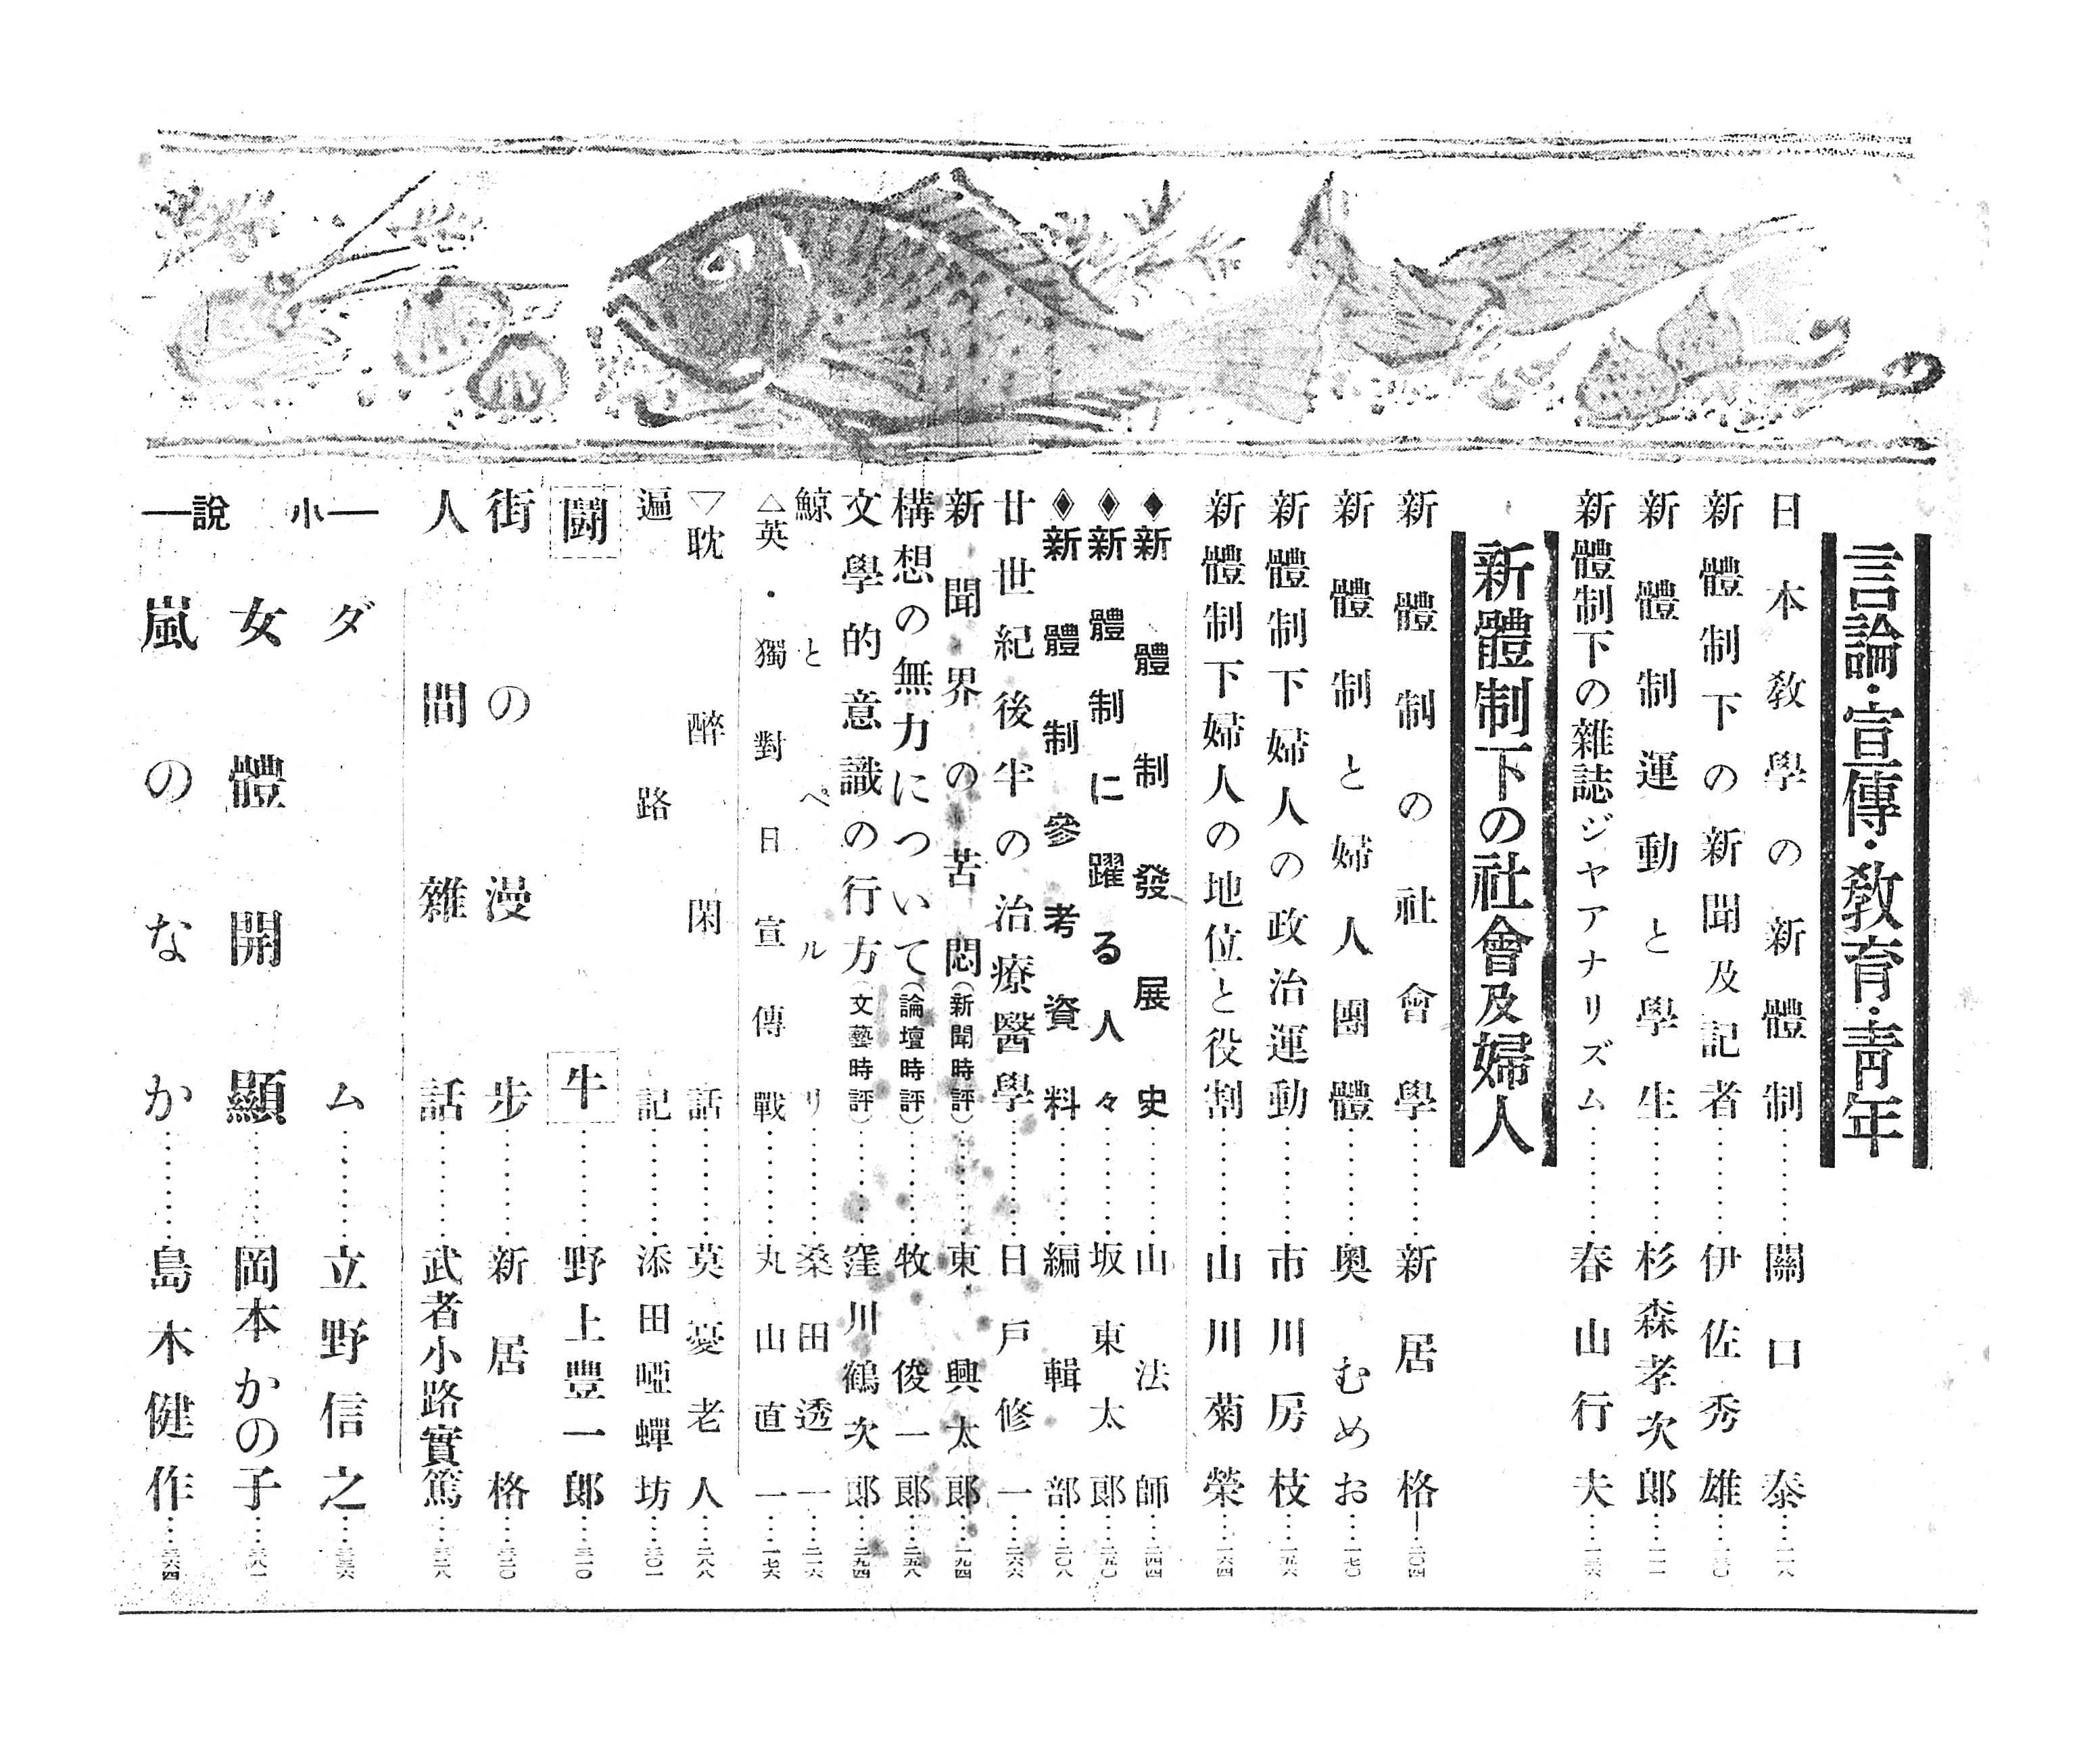 言論・宣傳・教育・靑年
日本敎學の新體制……關口泰……一一八
新體制下の新聞及記者……伊佐秀雄……一三〇
新體制運動と學生……杉森孝次郎……一一一
新體制下の雜誌ジヤアナリズム……春山行夫……一三六
新體制下の社會及婦人
新體制の社會學……新居格……二〇四
新體制と婦人團體……奧むめお……一七〇
新體制下婦人の政治運動……市川房枝……一五六
新體制下婦人の地位と役割……山川菊榮……一六四
◆新體制發展史……山法師……二四四
♦新體制に躍る人々……坂東太郞……二五〇
♦新體制參考資料……編輯部……二〇八
廿世紀後半の治療醫學……日戶修一……二六六
新聞界の苦悶（新聞時評）……東興太郞……一九四
構想の無力について（論壇時評）……牧俊一郞……二五八
文學的意識の行方（文藝時評）……窪川鶴次郞……二九四
鯨とペルリ……桑田透一……二一六
△英・獨對日宣傳戰……丸山直一……一七六
▽耽醉閑話……莫憂老人……二八八
遍路記……添田啞蟬坊……三〇一
鬪牛……野上豐一郞……三一〇
街の漫步……新居格……三二〇
人間雜話……武者小路實篤……三二八
―小說―
ダム……立野信之……三三六
女體開顯……岡本かの子……三八一
嵐のなか……島木健作……三六四